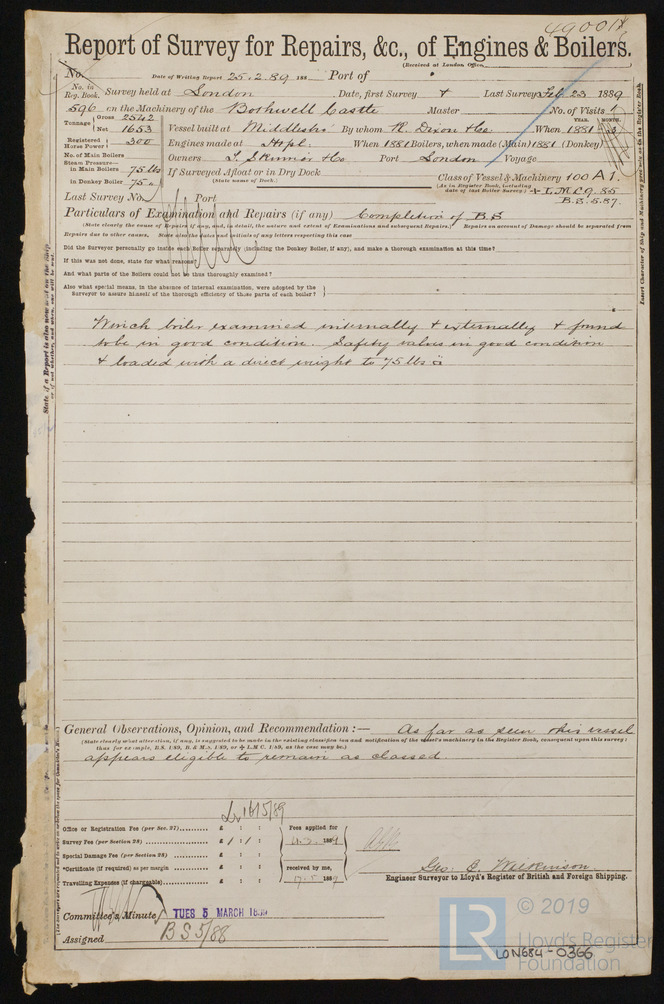 49001
Report of Survey for Repairs, &c., of Engines & Boilers.
(Received at London Office,
No. Date of Writing Report 25.2.89 188 Port of
No. in Reg. Book. Survey held at London Date, first Survey + Last Survey Feb 23 1889
596 on the Machinery of the Bothwell Castle Master No. of Visits 1
Tonnage Gross 2542
Net 1653 Vessel built at Middlesbro By whom R. Dixon & Co When 1881 YEAR. MONTH. 3
Registered Horse Power 300 Engines made at Htpl. When 1881 Boilers, when made (Main) 1881 (Donkey)
No. of Main Boilers Owners T. Skinner & Co Port London Voyage
Steam Pressure— in Main Boilers 75 lbs If Surveyed Afloat or in Dry Dock
(State name of Dock.)
Class of Vessel & Machinery 100 A1.
in Donkey Boiler 75 "
(As in Register Book, including date of last Boiler Survey.) + L.M.C. 9.85
B.S. 5.87.
Last Survey No. Port
Particulars of Examination and Repairs (if any) Completion of B.S
(State clearly the cause of Repairs if any, and, in detail, the nature and extent of Examinations and subsequent Repairs.) Repairs on account of Damage should be separated from
Repairs due to other causes. State also the dates and initials of any letters respecting this case
Did the Surveyor personally go inside each Boiler separately (including the Donkey Boiler, if any), and make a thorough examination at this time?
If this was not done, state for what reasons?
And what parts of the Boilers could not be thus thoroughly examined?
Also what special means, in the absence of internal examination, were adopted by the
Surveyor to assure himself of the thorough efficiency of those parts of each boiler?
Winch boiler examined internally & externally & found
to be in good condition. Safety valves in good condition
& loaded with a direct weight to 75 lbs □"
General Observations, Opinion, and Recommendation :— As far as seen this vessel
(State clearly what alteration, if any, is suggested to be made in the existing classification and notification of the vessel's machinery in the Register Book, consequent upon this survey;
thus for example, B.S. 1/89, B. & M.S. 1/89, or + L.M.C. 1/89, as the case may be.)
appears eligible to remain as classed
16/5/89
Office or Registration Fee (per Sec. 27) £ : : Fees applied for
Survey Fee (per Section 28) £ 1 : 1 : 4.3. 1889
Special Damage Fee (per Section 28) £ : :
*Certificate (if required) as per margin £ : : received by me,
Travelling Expenses (if chargeable) £ : : 17.5 1889
Geo. C. Wilkinson
Engineer Surveyor to Lloyd's Register of British and Foreign Shipping.
Committee's Minute TUES 5 MARCH 1889
Assigned B S 5/88
LR © 2019
Lloyd's Register
Foundation
LON684-0366